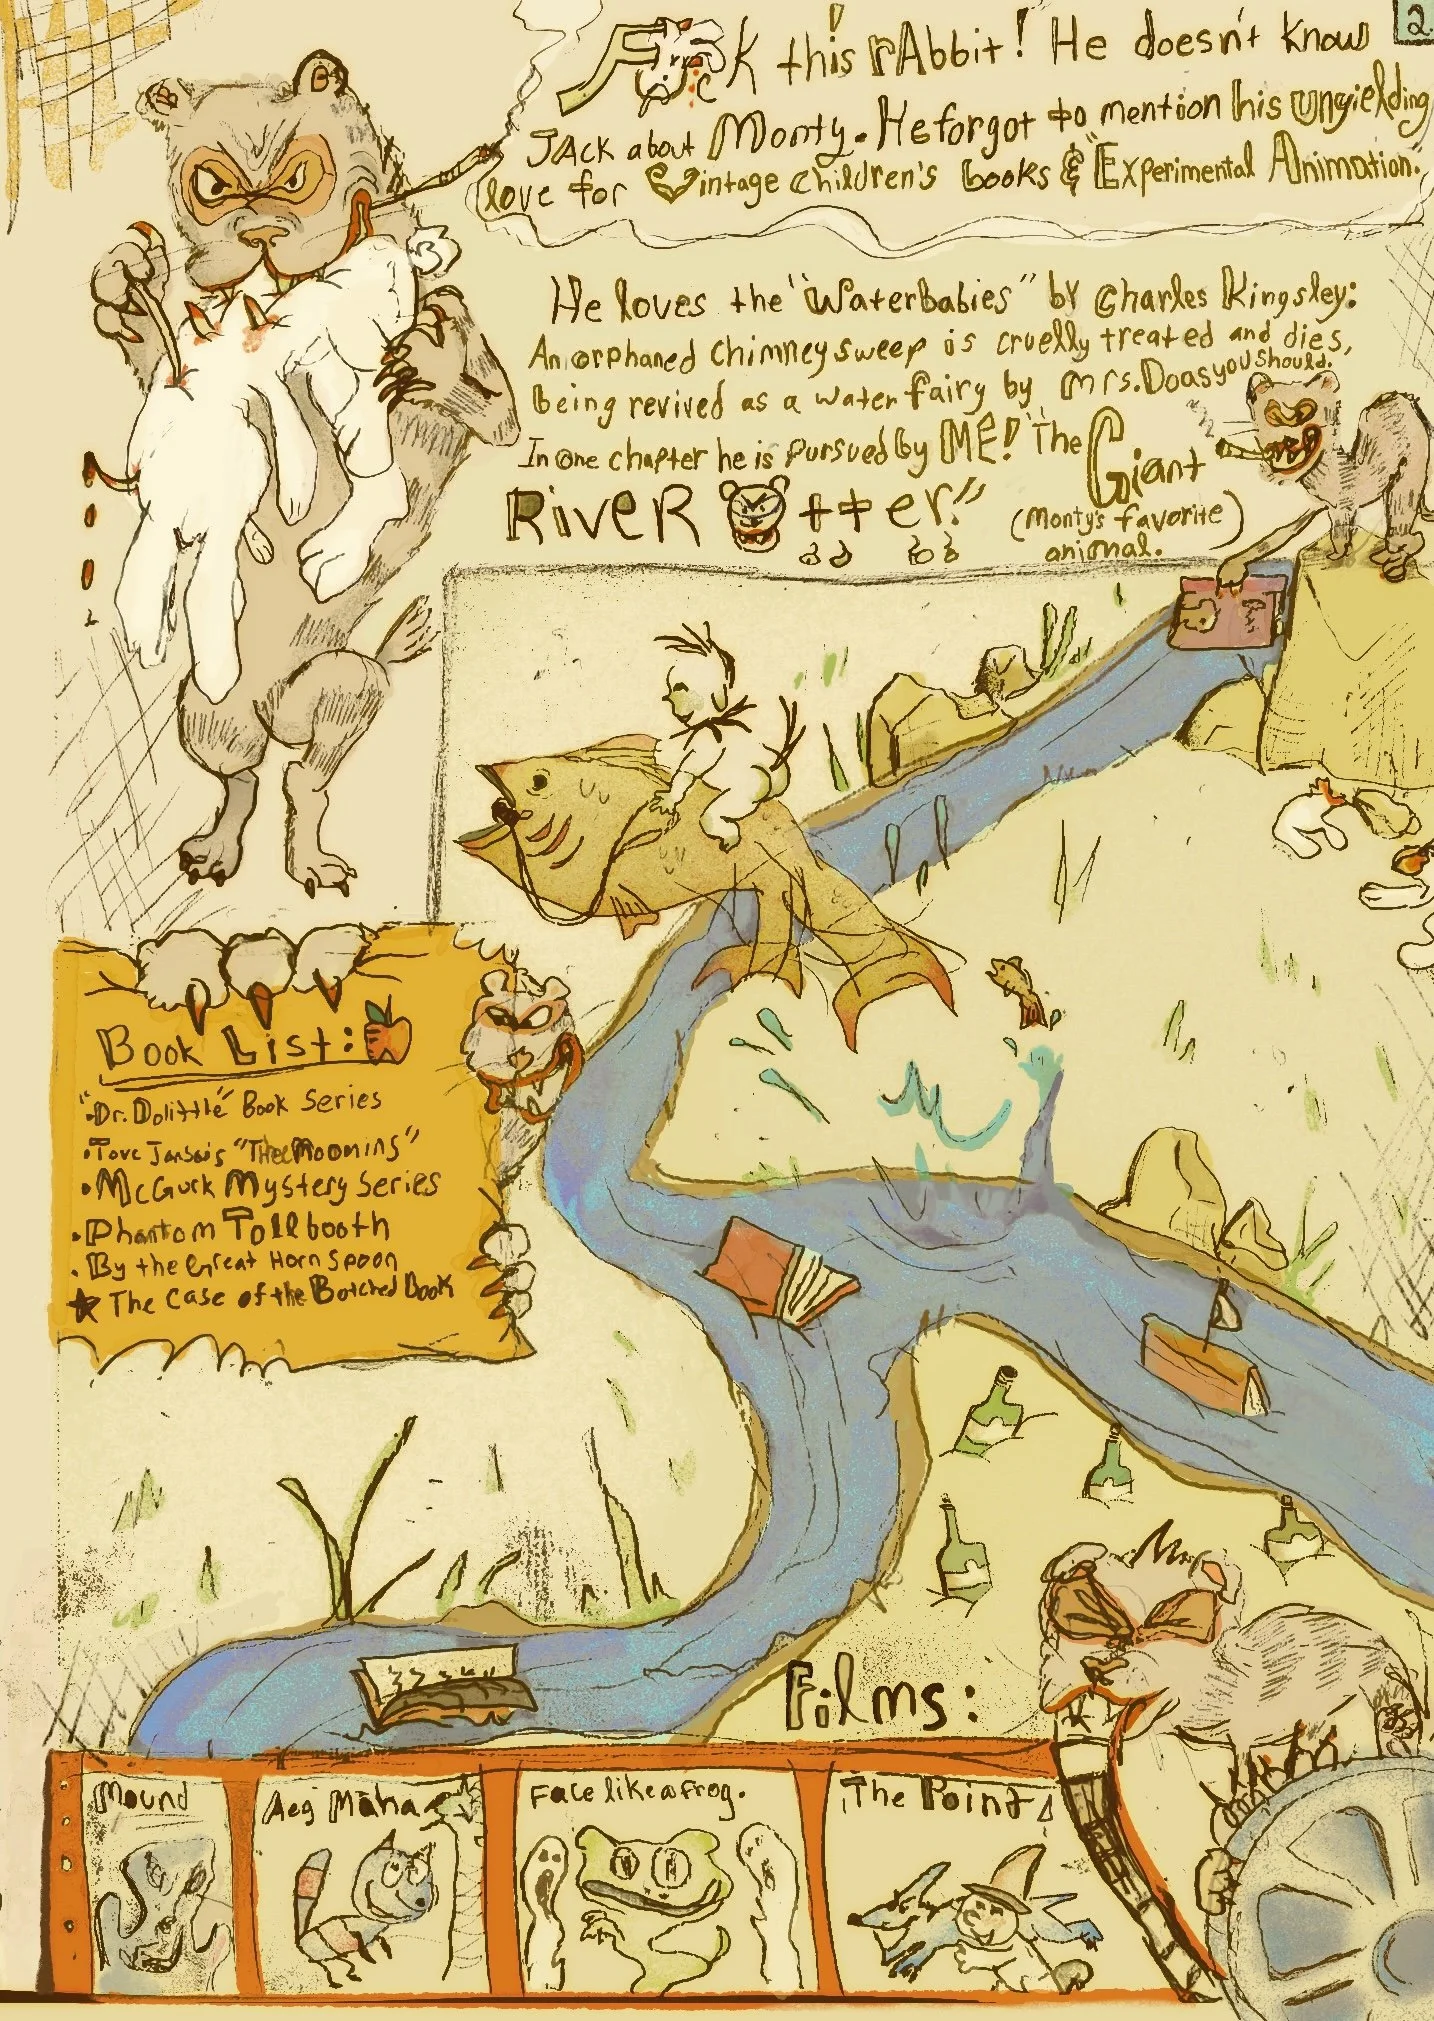 2.
F*ck this rAbbit! He doesn't know
JAck about Monty. He forgot to mention his unyielding
love for Vintage children's books & Experimental Animation.
He loves the "Waterbabies" by Charles Kingsley:
An orphaned chimney sweep is cruelly treated and dies,
being revived as a water fairy by Mrs. Doasyoushould.
In one chapter he is pursued by ME! "The Giant
RiveR Otter!"
(Monty's favorite
animal.
Book List:
"Dr. Dolittle" Book Series
Tove Janson's "The Moomins"
McGurk Mystery Series
Phantom Tollbooth
By the Great Horn Spoon
★ The Case of the Botched Book
Films:
Mound
Aeg Maha
Face like a frog.
The Point